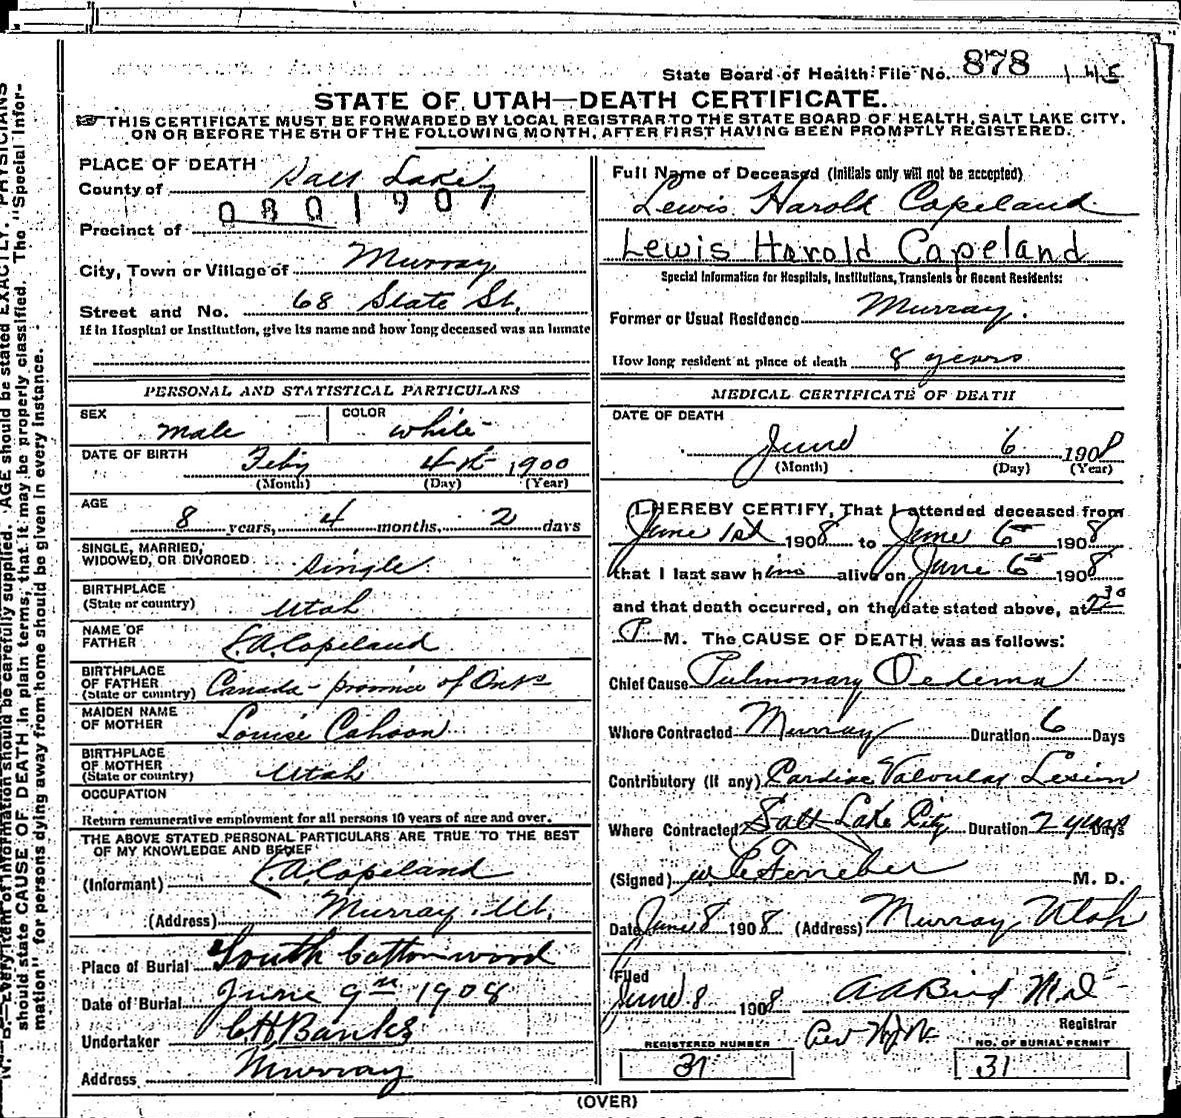 State Board of Health File No. 878 145
STATE OF UTAH—DEATH CERTIFICATE.
THIS CERTIFICATE MUST BE FORWARDED BY LOCAL REGISTRAR TO THE STATE BOARD OF HEALTH, SALT LAKE CITY,
ON OR BEFORE THE 5TH OF THE FOLLOWING MONTH, AFTER FIRST HAVING BEEN PROMPTLY REGISTERED.
PLACE OF DEATH
County of Salt Lake
0801907
Precinct of
City, Town or Village of Murray
Street and No. 68 State St.
If in Hospital or Institution, give its name and how long deceased was an inmate
PERSONAL AND STATISTICAL PARTICULARS
SEX male COLOR white
DATE OF BIRTH Feby 4th 1900
(Month) (Day) (Year)
AGE
8 years, 4 months, 2 days
SINGLE, MARRIED,
WIDOWED, OR DIVORCED single
BIRTHPLACE
(State or country) Utah
NAME OF
FATHER L.A. Copeland
BIRTHPLACE
OF FATHER
(State or country) Canada - province of Ont
MAIDEN NAME
OF MOTHER Louise Cahoon
BIRTHPLACE
OF MOTHER
(State or country) Utah
OCCUPATION
Return remunerative employment for all persons 10 years of age and over.
THE ABOVE STATED PERSONAL PARTICULARS ARE TRUE TO THE BEST
OF MY KNOWLEDGE AND BELIEF
(Informant) L.A. Copeland
(Address) Murray Ut.
Place of Burial South Cottonwood
Date of Burial June 9th 1908
Undertaker C.H. Banks
Address Murray
Full Name of Deceased (Initials only will not be accepted)
Lewis Harold Copeland
Lewis Harold Copeland
Special Information for Hospitals, Institutions, Transients or Recent Residents:
Former or Usual Residence Murray.
How long resident at place of death 8 years
MEDICAL CERTIFICATE OF DEATH
DATE OF DEATH
June 6 1908
(Month) (Day) (Year)
I HEREBY CERTIFY, That I attended deceased from
June 1st 1908 to June 6th 1908
that I last saw him alive on June 6th 1908
and that death occurred, on the date stated above, at 2 30
P M. The CAUSE OF DEATH was as follows:
Chief Cause Pulmonary Oedema
Where Contracted Murray Duration 6 Days
Contributory (if any) Cardiac Valvular Lesion
Where Contracted Salt Lake City Duration 2 years Days
(Signed) W.C. Ferreber M. D.
Date June 8 1908 (Address) Murray Utah
Filed
June 8 1908 A A Bird M.D.
Registrar
REGISTERED NUMBER
31
NO. OF BURIAL PERMIT
31
(OVER)
N. B.—Every item of information should be carefully supplied. AGE should be stated EXACTLY. PHYSICIANS
should state CAUSE OF DEATH in plain terms, that it may be properly classified. The "Special Infor-
mation" for persons dying away from home should be given in every instance.